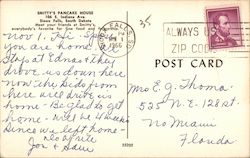 SMITTY'S PANCAKE HOUSE
106 S. Indiana Ave
Sioux Falls, South Dakota
Meet your friends at Smitty's
everybody's favorite for fine food and
FALLS
PM
1
1966
ALWAYS U
ZIP COD
35
POST CARD
Nov 1. Hi - Hope
you are home
Stop at Ednas & they
drove us down here
now the kids from
here will drive us
home - Be glad to get
home - Will be 4 weeks
since we left home -
Joe & Sara
Mrs E. G. Thoma
525 N.E. 128 st.
No Miami
Florida